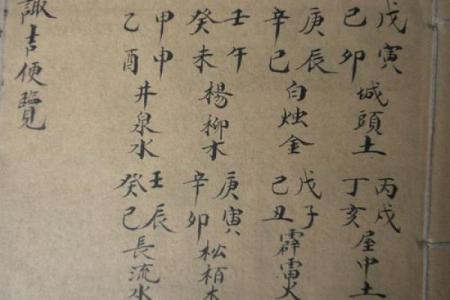 戊寅
己卯
城頭土
庚辰
辛巳
白烛金
壬午
癸未
楊柳木
甲申
乙酉
井泉水
丙戌
丁亥
屋中土
戊子
己丑
霹雷火
庚寅
辛卯
松柏木
壬辰
癸巳
長流水
諏吉便覽